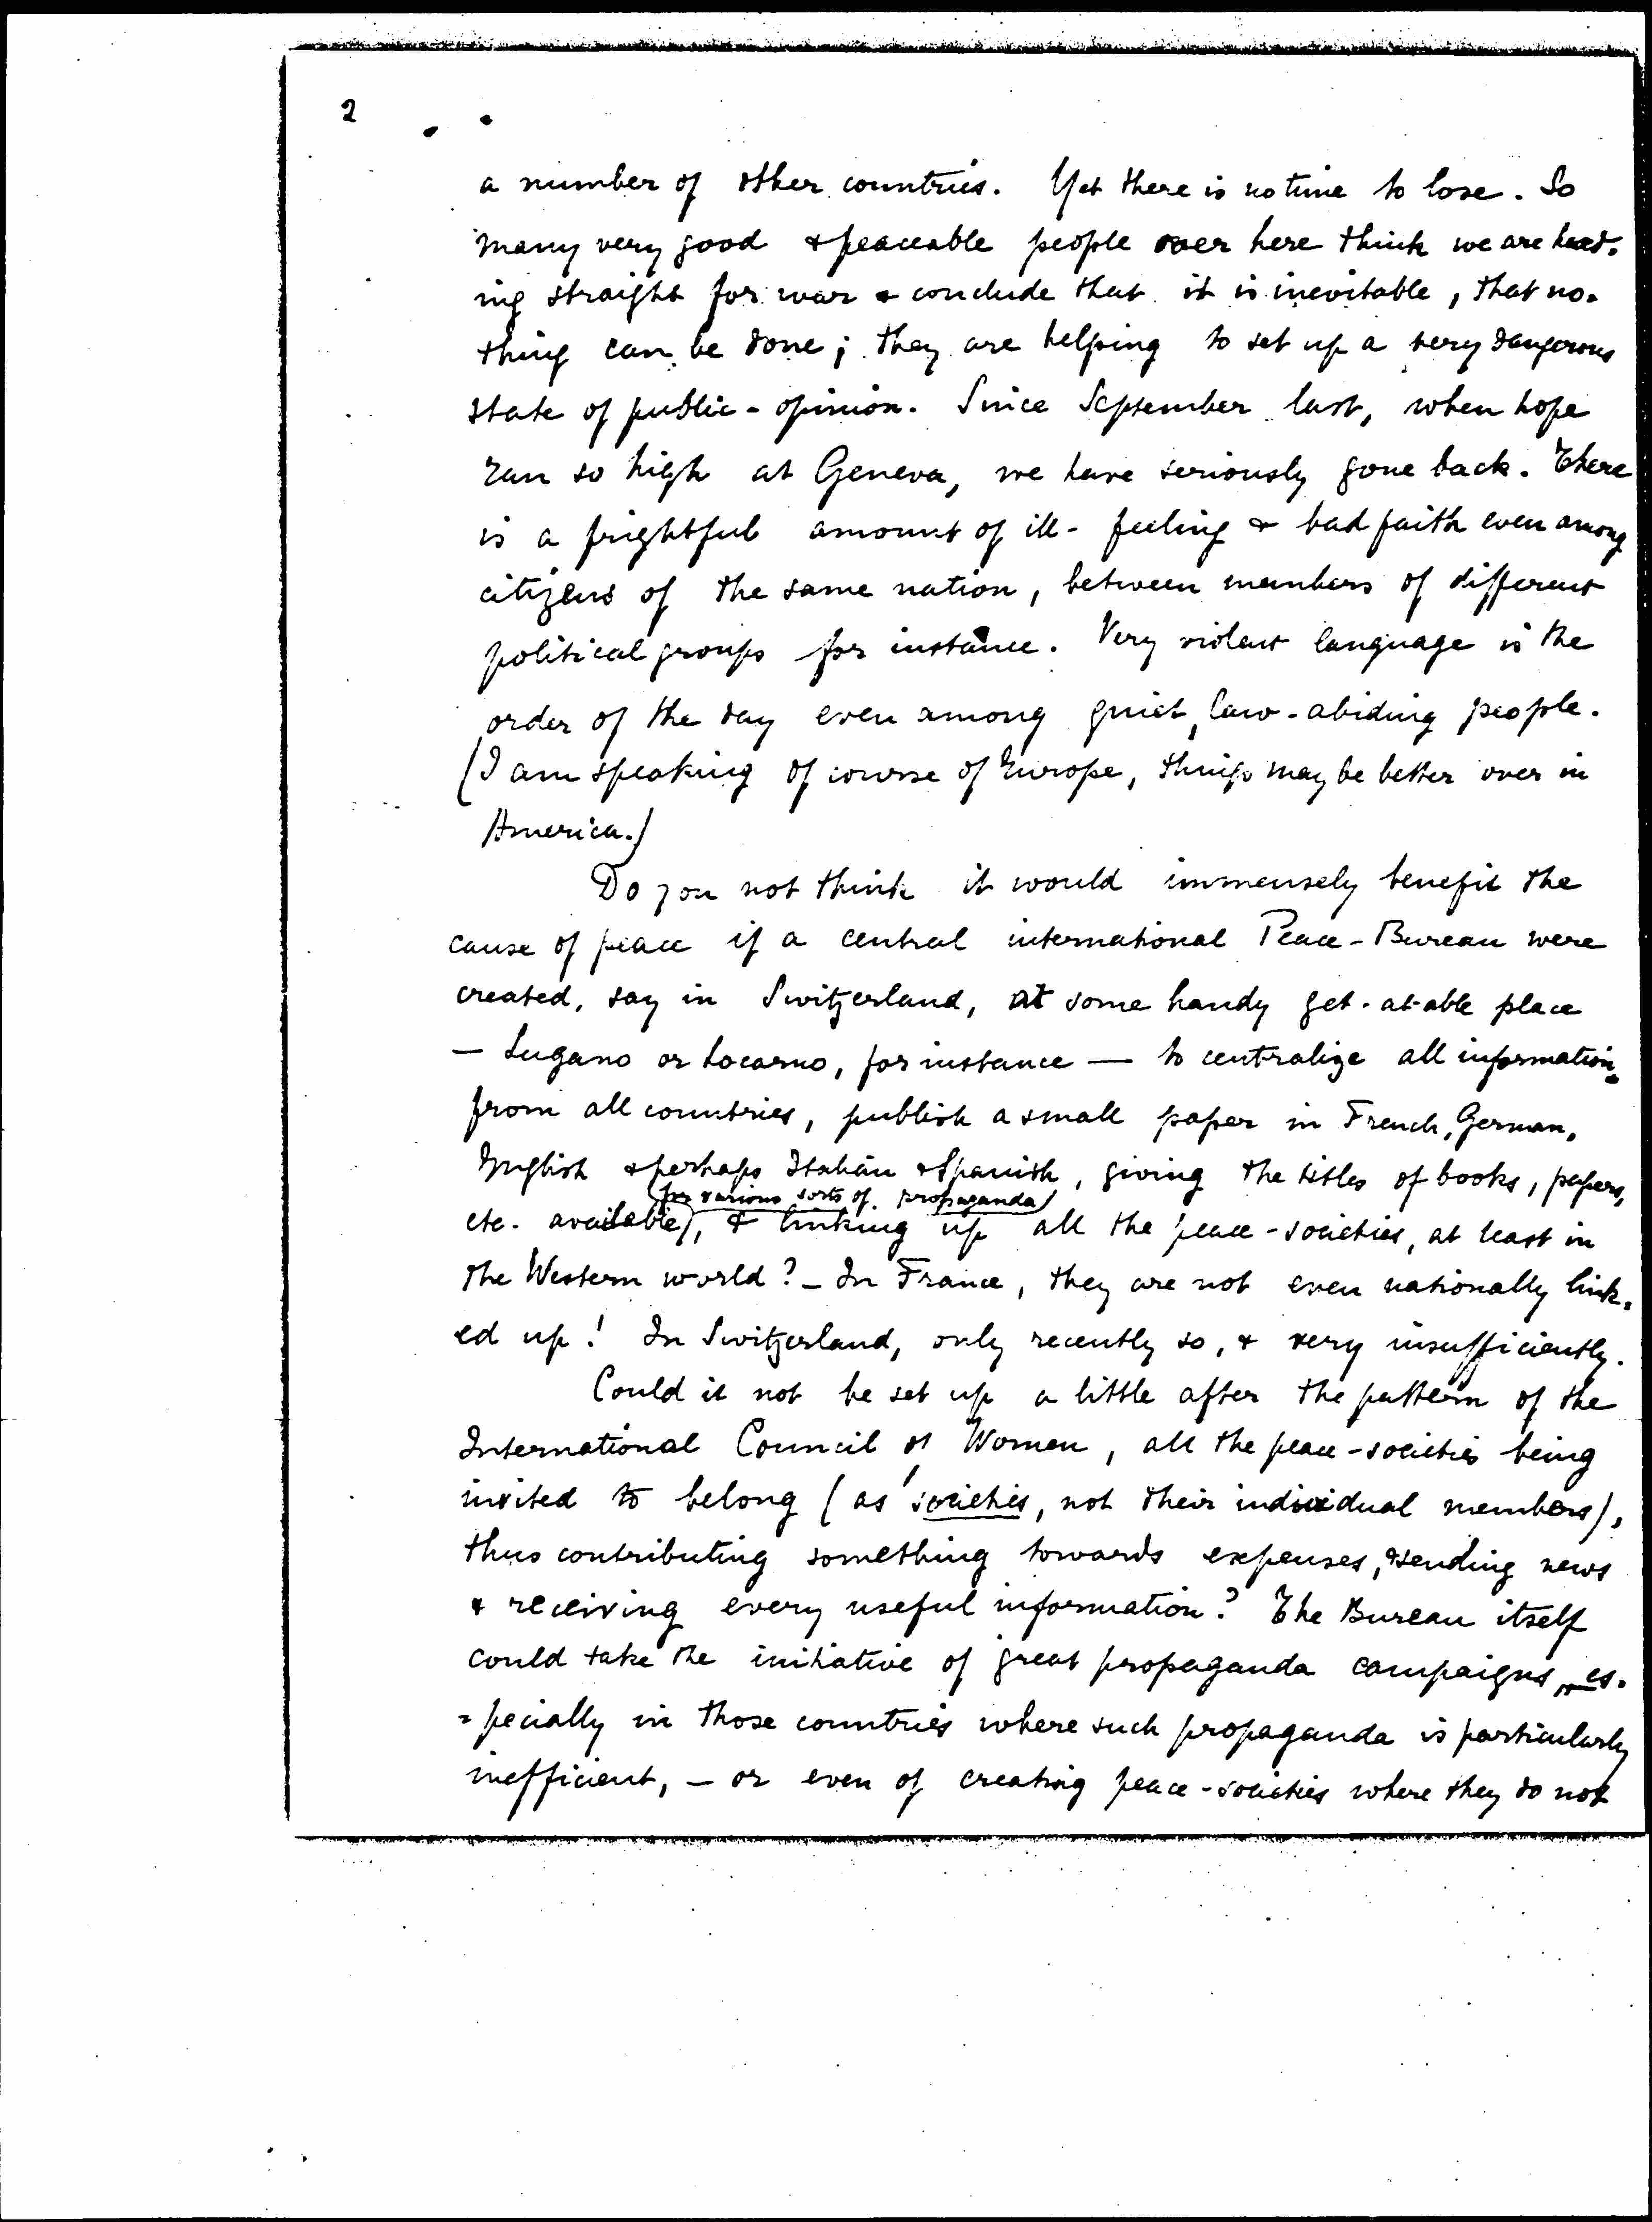 2
a number of other countries. Yet there is no time to lose. So
many very good & peaceable people over here think we are head-
ing straight for war & conclude that it is inevitable, that no-
thing can be done; they are helping to set up a very dangerous
state of public-opinion. Since September last, when hope
ran so high at Geneva, we have seriously gone back. There
is a frightful amount of ill-feeling & bad faith even among
citizens of the same nation, between members of different
political groups for instance. Very violent language is the
order of the day even among quiet, law-abiding people.
(I am speaking of course of Europe, things may be better over in
America.)
Do you not think it would immensely benefit the
cause of peace if a central international Peace-Bureau were
created, say in Switzerland, at some handy get-at-able place
— Lugano or Locarno, for instance — to centralize all information
from all countries, publish a small paper in French, German,
English & perhaps Italian & Spanish, giving the titles of books, papers,
(for various sorts of propaganda)
etc. available), & linking up all the peace-societies, at least in
the Western world? - In France, they are not even nationally link-
ed up! In Switzerland, only recently so, & very insufficiently.
Could it not be set up a little after the pattern of the
International Council of Women, all the peace-societies being
invited to belong (as societies, not their individual members),
thus contributing something towards expenses, & sending news
& receiving every useful information? The Bureau itself
could take the initiative of great propaganda campaigns, es-
=pecially in those countries where such propaganda is particularly
inefficient, - or even of creating peace-societies where they do not